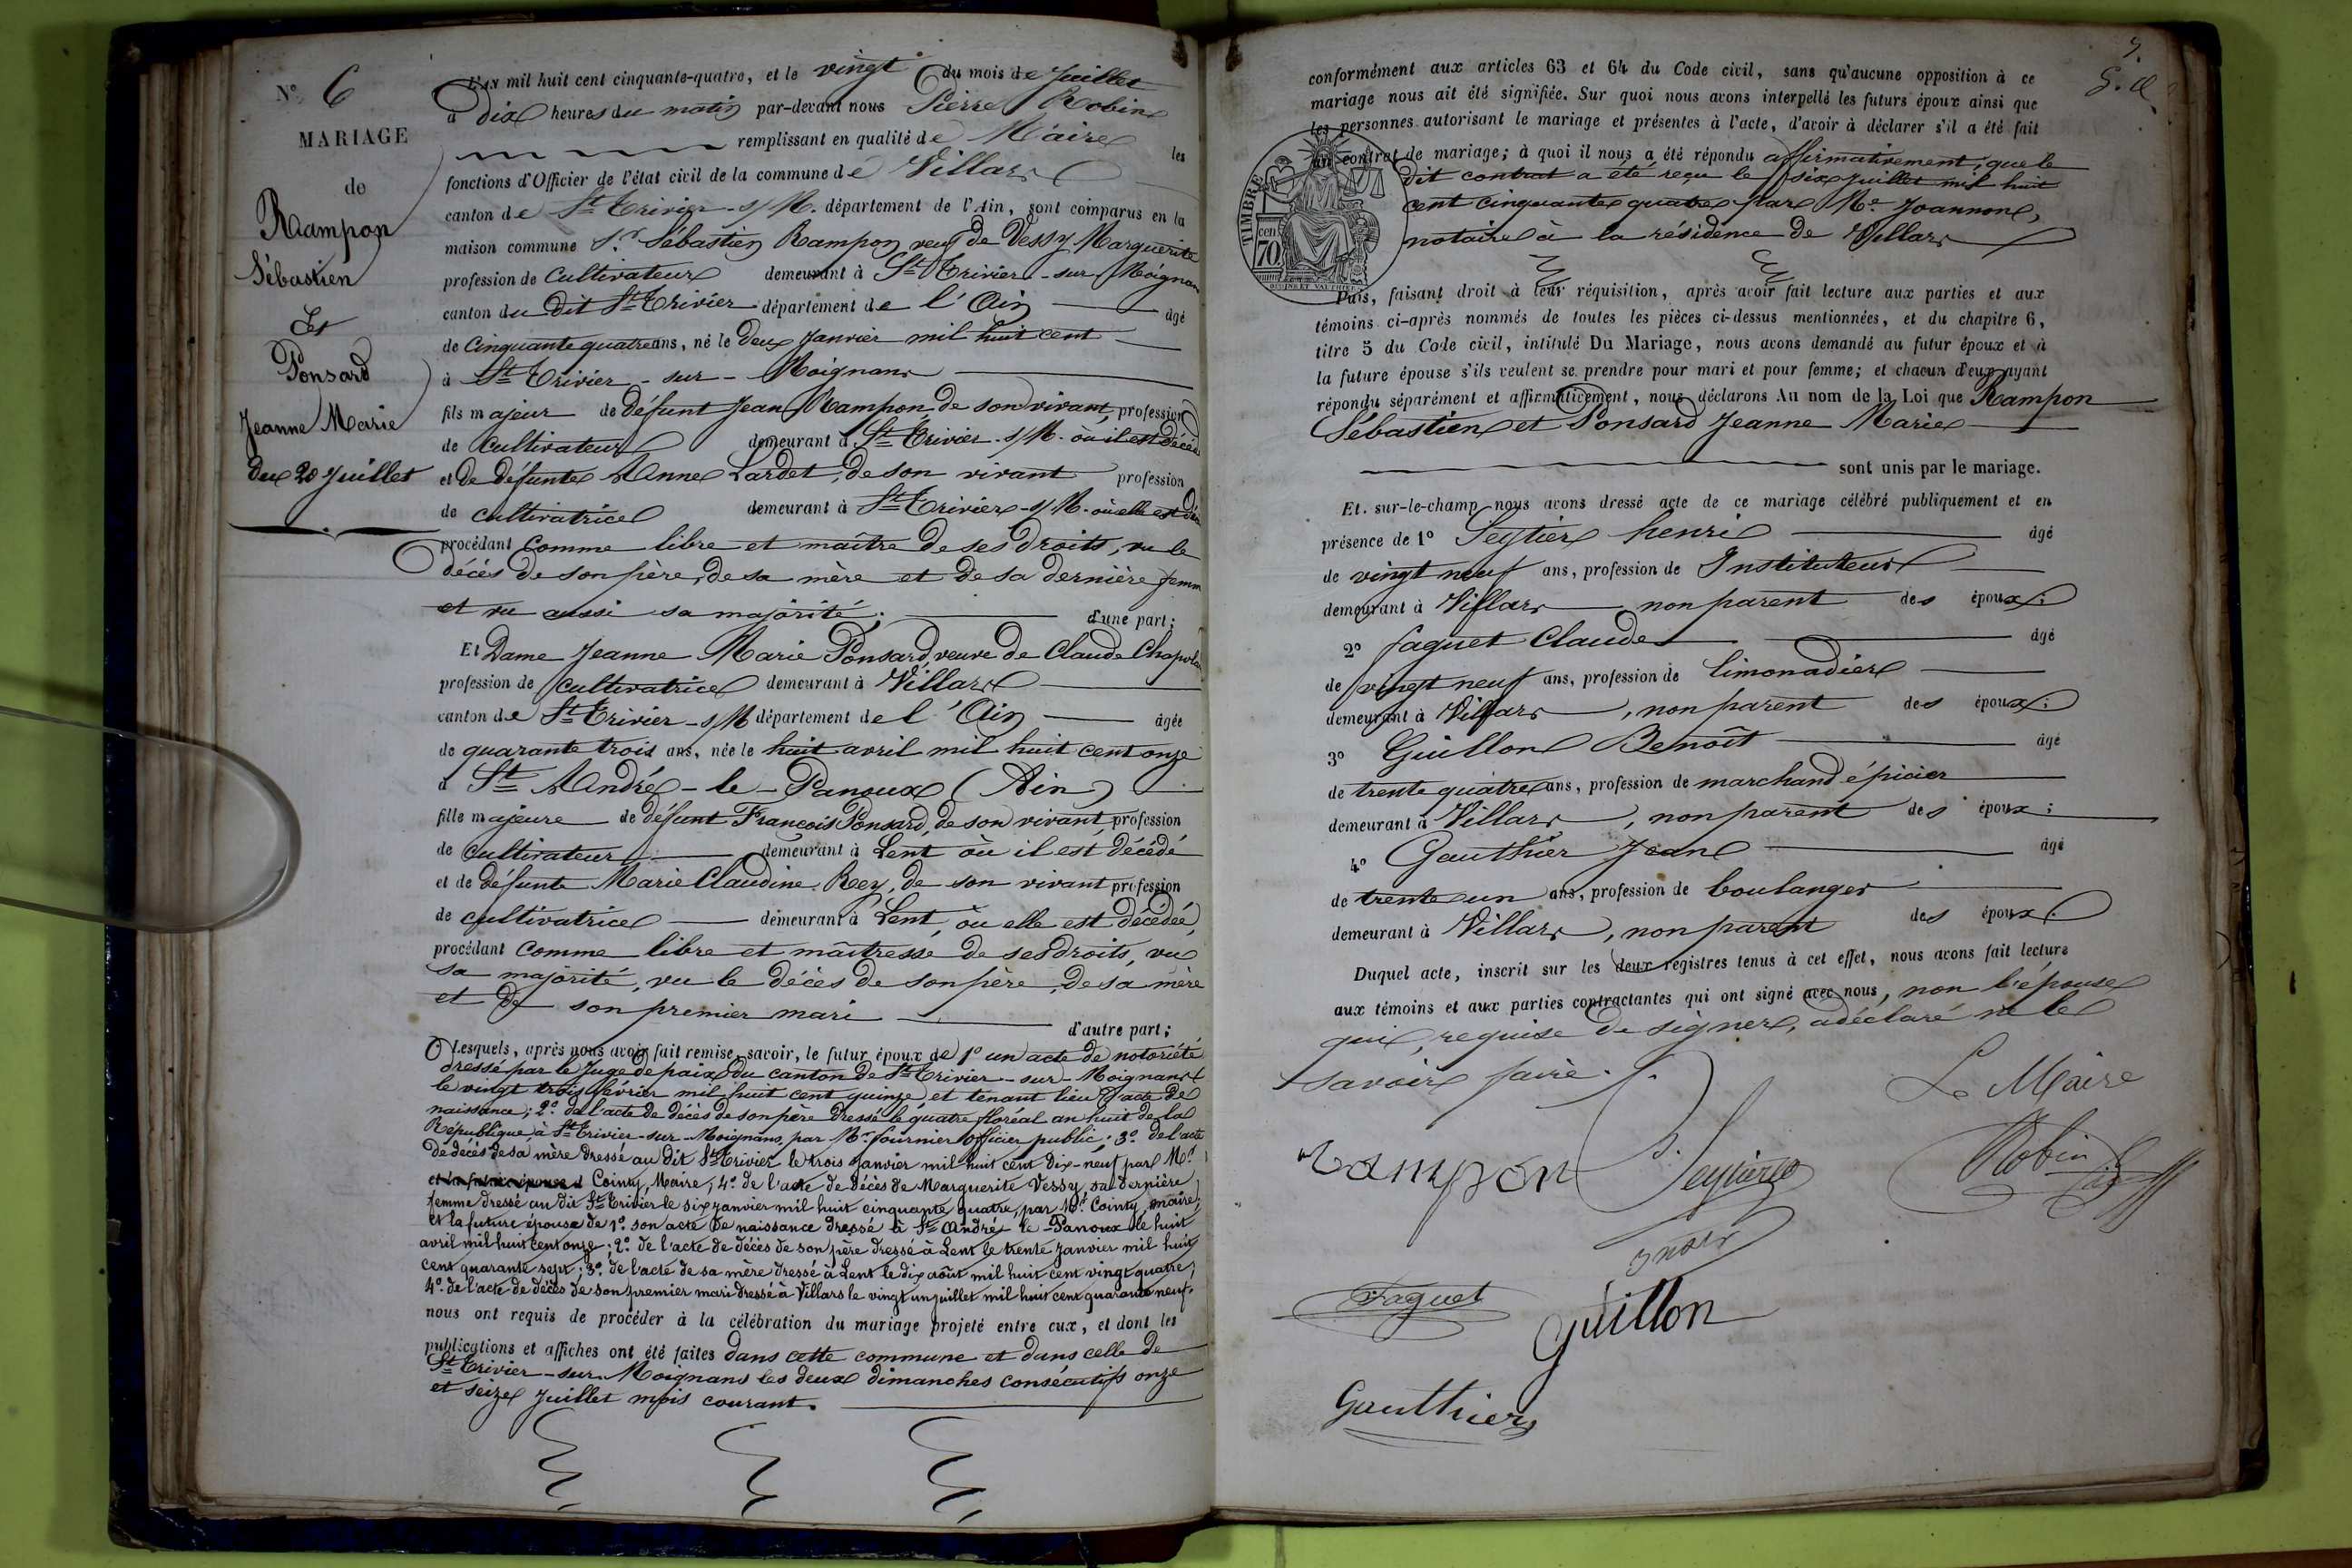 N° 6
MARIAGE
de
Rampon
Sébastien
Et
Ponsard
Jeanne Marie
Du 20 Juillet
L'AN mil huit cent cinquante-quatre, et le vingt du mois de Juillet
à dix heures du matin par-devant nous Pierre Robin
remplissant en qualité de Maire les
fonctions d'Officier de l'état civil de la commune de Villars
canton de St Trivier-s/M. département de l'Ain, sont comparus en la
maison commune Sr Sébastien Rampon veuf de Vessy Marguerite
profession de cultivateur demeurant à St Trivier-sur-Moignans
canton du dit St Trivier département de l'Ain âgé
de Cinquante quatre ans, né le deux Janvier mil huit cent
à St Trivier-sur-Moignans
fils majeur de défunt Jean Rampon, de son vivant, profession
de cultivateur demeurant à St Trivier-s/M. où il est décédé
et de défunte Anne Lardet, de son vivant profession
de cultivatrice demeurant à St Trivier-s/M. où elle est
procédant comme libre et maître de ses droits, vu le
décès de son père, de sa mère et de sa dernière femme
et vu aussi sa majorité. d'une part;
Et Dame Jeanne Marie Ponsard, veuve de Claude
profession de cultivatrice demeurant à Villars
canton de St Trivier-s/M département de l'Ain âgée
de quarante trois ans, née le huit avril mil huit cent onze
à St André-le-Panoux (Ain)
fille majeure de défunt François Ponsard, de son vivant, profession
de cultivateur demeurant à Lent où il est décédé
et de défunte Marie Claudine Rey, de son vivant profession
de cultivatrice demeurant à Lent, où elle est décédée,
procédant comme libre et maîtresse de ses droits, vu
sa majorité, vu le décès de son père, de sa mère
et de son premier mari d'autre part;
Lesquels, après nous avoir fait remise, savoir, le futur époux de 1° un acte de notoriété
dressé par le Juge de paix du canton de St Trivier-sur-Moignans
le vingt trois février mil huit cent quinze, et tenant lieu d'acte de
naissance; 2° de l'acte de décès de son père dressé le quatre floréal an huit de la
République, à St Trivier-sur-Moignans, par Mr fournier officier public; 3° de l'acte
de décès de sa mère dressé au dit St Trivier le trois janvier mil huit cent dix-neuf par Mr
et la future épouse d Cointy, Maire; 4° de l'acte de décès de Marguerite Vessy, sa dernière
femme dressé au dit St Trivier le six janvier mil huit cinquante quatre, par Mr Cointy, maire;
et la future épouse de 1° son acte de naissance dressé à St André-le-Panoux le huit
avril mil huit cent onze; 2° de l'acte de décès de son père dressé à Lent le trente Janvier mil huit
cent quarante sept; 3° de l'acte de sa mère dressé à Lent le dix août mil huit cent vingt quatre;
4° de l'acte de décès de son premier mari dressé à Villars le vingt un juillet mil huit cent quarante neuf.
nous ont requis de procéder à la célébration du mariage projeté entre eux, et dont les
publications et affiches ont été faites dans cette commune et dans celle de
St Trivier-sur-Moignans les deux dimanches consécutifs onze
et seize Juillet mois courant.
conformément aux articles 63 et 64 du Code civil, sans qu'aucune opposition à ce
mariage nous ait été signifiée. Sur quoi nous avons interpellé les futurs époux ainsi que
les personnes autorisant le mariage et présentes à l'acte, d'avoir à déclarer s'il a été fait
un contrat de mariage; à quoi il nous a été répondu affirmativement, que le
dit contrat a été reçu le six Juillet mil huit
cent cinquante quatre par Me Joannon,
notaire à la résidence de Villars
TIMBRE
cen
70
Puis, faisant droit à leur réquisition, après avoir fait lecture aux parties et aux
témoins ci-après nommés de toutes les pièces ci-dessus mentionnées, et du chapitre 6,
titre 5 du Code civil, intitulé Du Mariage, nous avons demandé au futur époux et à
la future épouse s'ils veulent se prendre pour mari et pour femme; et chacun d'eux ayant
répondu séparément et affirmativement, nous déclarons Au nom de la Loi que Rampon
Sébastien et Ponsard Jeanne Marie
sont unis par le mariage.
Et sur-le-champ nous avons dressé acte de ce mariage célébré publiquement et en
présence de 1° Seytier henri âgé
de vingt neuf ans, profession de Instituteur
demeurant à Villars non parent des époux;
2° faguet Claude âgé
de vingt neuf ans, profession de limonadier
demeurant à Villars, non parent des époux;
3° Guillon Benoît âgé
de trente quatre ans, profession de marchand épicier
demeurant à Villars, non parent des époux;
4° Gauthier Jean âgé
de trente un ans, profession de boulanger
demeurant à Villars, non parent des époux.
Duquel acte, inscrit sur les deux registres tenus à cet effet, nous avons fait lecture
aux témoins et aux parties contractantes qui ont signé avec nous, non l'épouse
qui, requise de signer, a déclaré ne le
savoir faire.
Le Maire
Rampon
Seytier
Robin
Faguet
Guillon
Gauthier